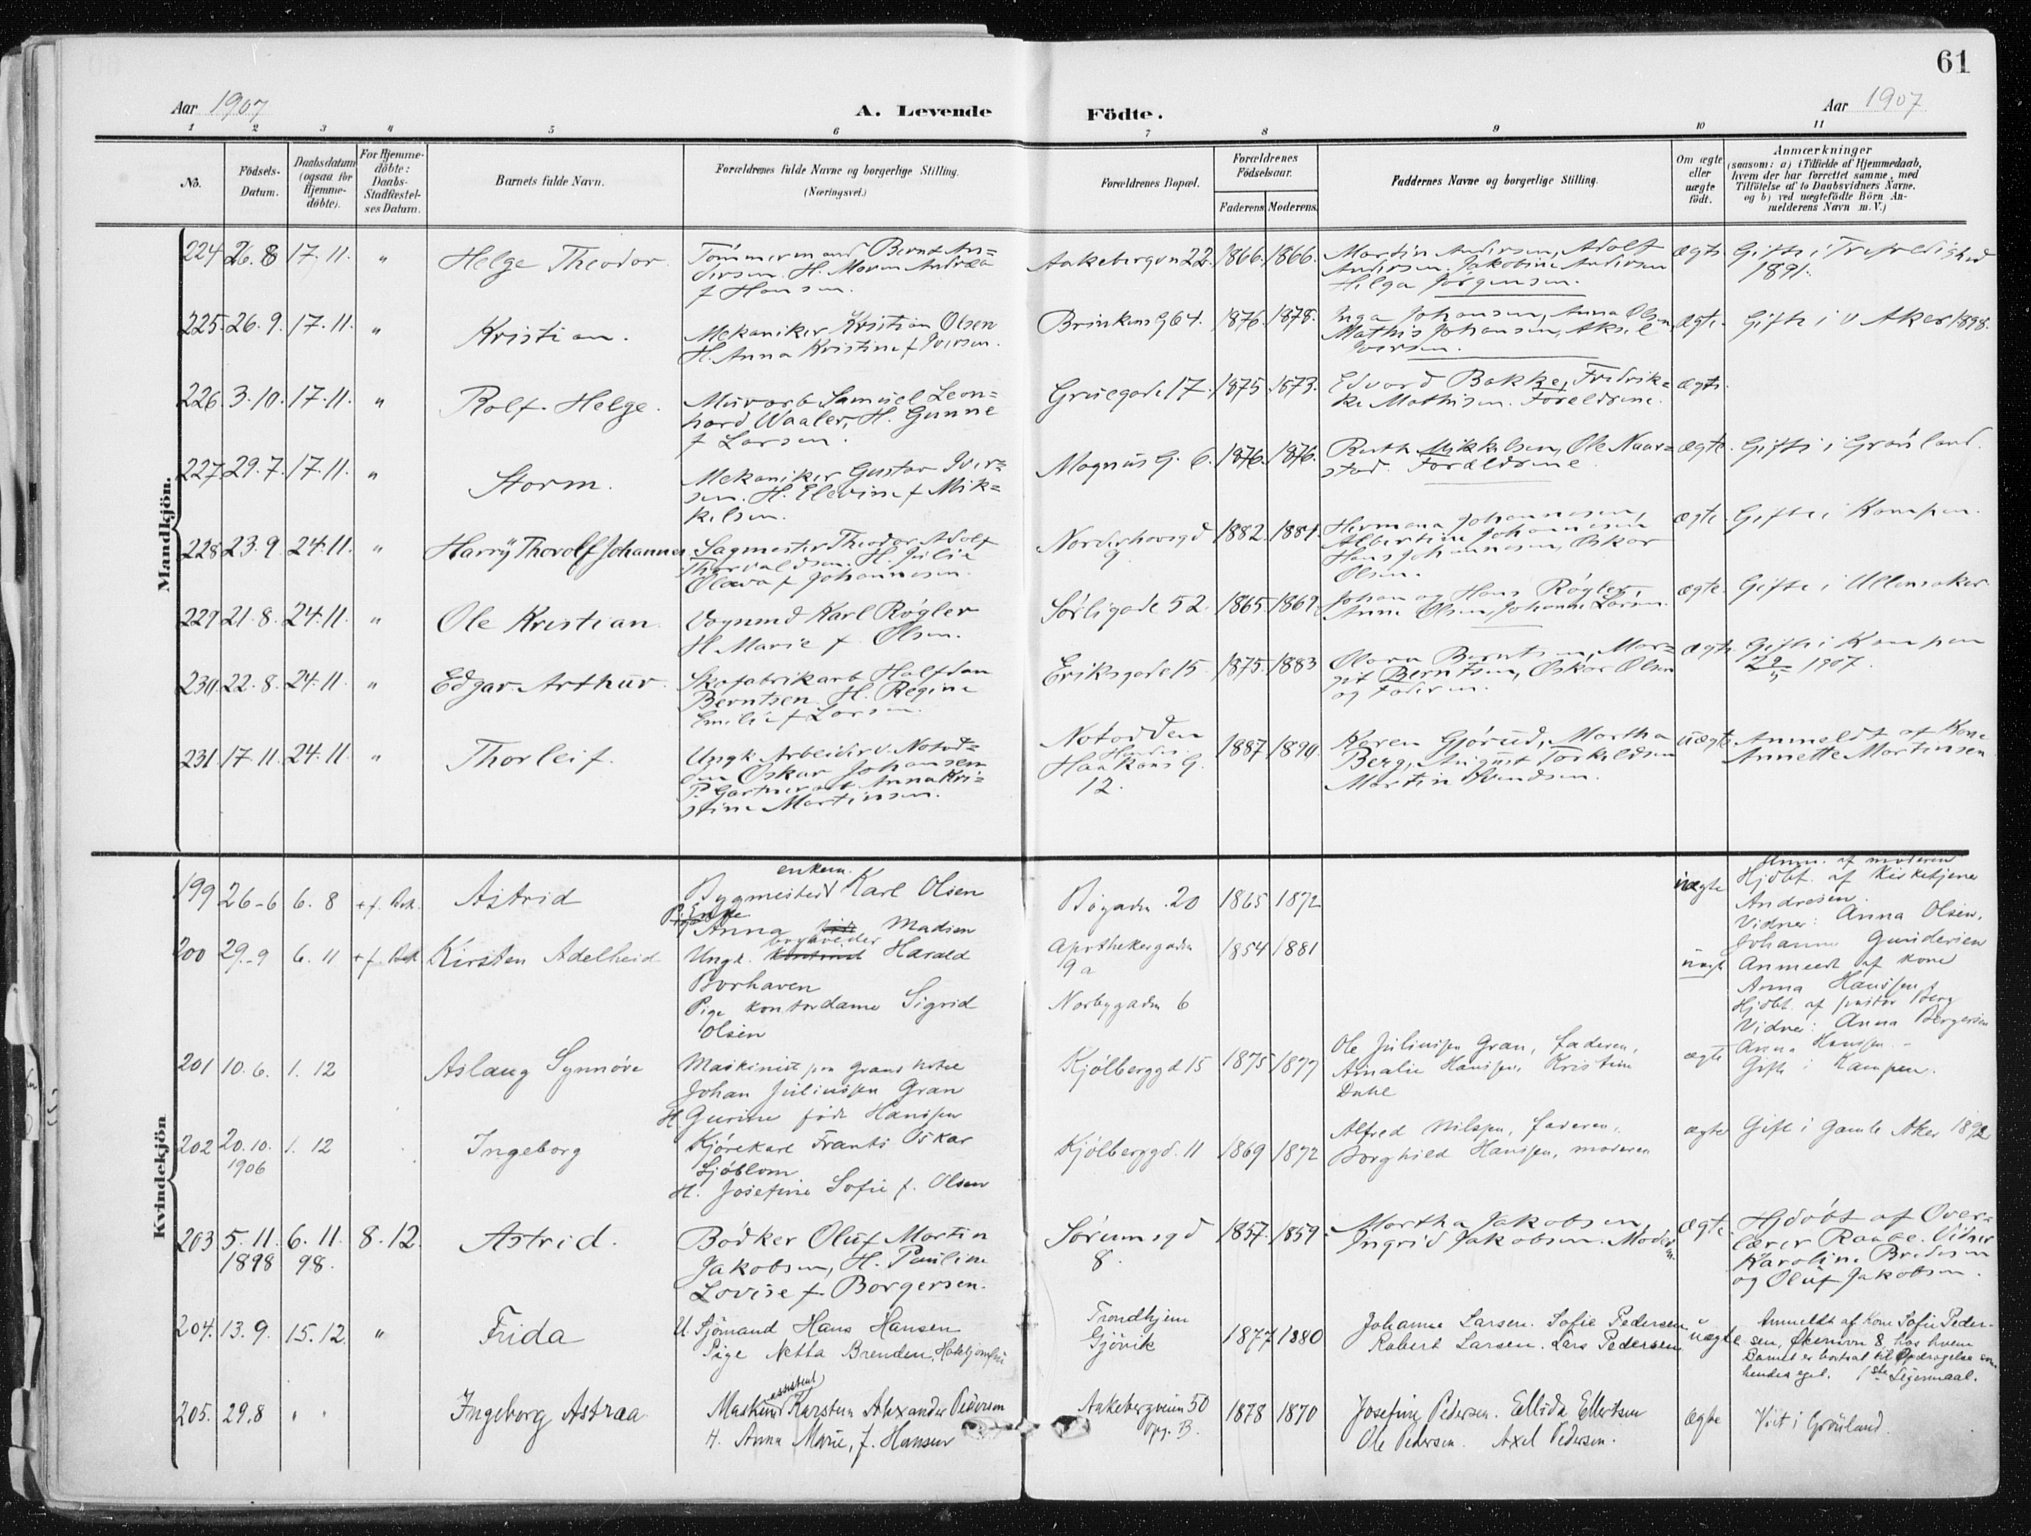 61
Aar 1907
A. Levende Födte.
Aar 1907
1 2 3 4 5 6 7 8 9 10 11
No. Födsels-Datum. Daabsdatum (ogsaa for Hjemme-döbte). For Hjemme-döbte: Daabs-Stadfæstel-ses Datum. Barnets fulde Navn. Forældrenes fulde Navne og borgerlige Stilling. (Næringsvei.) Forældrenes Bopæl. Forældrenes Födselsaar. Faderens. Moderens. Faddernes Navne og borgerlige Stilling. Om ægte eller uægte født. Anmærkninger (saasom: a) i Tilfælde af Hjemmedaab, hvem der har forrettet samme, med Tilföielse af to Daabsvidners Navne, og b) ved uægtefödte Börn An-melderens Navn m. V.)
Mandkjön.
224 26.8 17.11. " Helge Theodor. Tömmermand Bernt An-
dersen. H. Maren Andrea
f Hansen.
Aakebergvn 22. 1866. 1866. Martin Andersen, Adolf
Andersen. Jakobine Andersen
Helga Jørgensen.
ægte. Gifte i Trefoldighed
1891.
225. 26.9. 17.11. " Kristian. Mekaniker Kristian Olsen
H. Anna Kristine f Iversen.
Brinkens G 64. 1876. 1878. Inga Johansen, Anna Olsen
Mathis Johansen, Aksel
Iversen.
ægte. Gifte i V Aker 1898.
226. 3.10. 17.11. " Rolf Helge. Murarb Samuel Leon-
hard Waaler, H. Gunne
f Larsen.
Grüegade 17. 1875. 1873. Edvard Bakke, Fredrik-
ke Mathisen. Forældrene.
ægte.
227 29.7. 17.11. " Storm. Mekaniker Gustav Iver-
sen. H. Elevine f Mik-
kelsen.
Magnus G. 6. 1876. 1876. Ruth Mikkelsen, Ole Naar-
stad Forældrene.
ægte. Gifte i Grønland.
228 23.9 24.11. " Harry Thorolf Johannes Sagmester Theodor Adolf
Thorvaldsen. H. Julie
Olava f Johannesen.
Norderhovsgd
9
1882. 1881. Hermana Johannesen,
Albertine Johannesen
Hans Johannesen, Oskar
Olsen.
ægte. Gifte i Kampen.
229 21.8. 24.11. " Ole Kristian. Vognmd Karl Røgler
H. Marie f. Olsen.
Sørligade 52. 1865. 1869. Johan og Hans Røgler,
Anne Olsen, Johanne Larsen.
ægte. Gifte i Ullensaker
230 22.8. 24.11. " Edgar Arthur. Skofabrikarb Halfdan
Berntsen. H. Regine
Emilie f Larsen.
Eriksgade 15. 1875. 1883 Olava Berntsen, Mar-
git Berntsen, Oskar Olsen
og Faderen.
ægte. Gifte i Kampen
29/5 1907.
231 17.11. 24.11. " Thorleif. Ungk. Arbeider v. Notod-
den Oskar Johansen
P. Gartnerarb Anna Kri-
stine Martinsen.
Notodden
Hendes.
Haakons G.
12.
1887 1890. Karen Gjørud, Martha
Berg, August Torkildsen
Martin Svendsen.
uægte Anmeldt af Kone
Annette Martinsen
Kvindekjön
199 26-6 6.8 Astrid enkem.
Bygmester Karl Olsen
Pige
Anna Madsen
Bøgadn. 20 1865 1872 uægte Anm. af moderen
Hjdbt. af kirketjener
Andresen.
Vidner: Anna Olsen,
Johanne Gundersen
200 29.-9 6.11 Kirsten Adelheid Ungk. Harald
Borhaven
Pige kontordame Sigrid
Olsen
Apothekergaden
9a
Norbygaden 6
1854 1881 uægt Anmeldt af kone
Anna Hanssen
Hjdbt. af pastor Berg
Vidner: Anna Bergersen
Anna Hanssen.
201 10.6. 1.12 Aslaug Synnøve Maskinist paa Grand Hotel
Johan Juliussen Gran
H. Gurine født Hanssen
Kjølberggd 15 1875 1877 Ole Juliussen Gran, faderen,
Amalie Hanssen, Kristine
Dahl
ægte Gift i Kampen.
202 20.10.
1906
1.12 Ingeborg Kjørekarl Frants Oskar
Sjöblom
H. Josefine Sofie f. Olsen
Kjølberggd. 11 1869 1872 Alfred Nilssen, faderen,
Borghild Hanssen, moderen
ægte Gift i Gamle Aker 1892
203 5.11.
1898
6.11
98.
8.12. Astrid. Bødker Oluf Martin
Jakobsen, H. Pauline
Lovise f. Borgersen.
Sørumsgd
8.
1857. 1859. Martha Jakobsen
Ingrid Jakobsen. Moderen
ægte. Hjdöbt af Over-
lærer Raabe. Vidner
Karoline Bredesen
og Oluf Jakobsen.
204. 13.9. 15.12 " Frida U. Sjömand Hans Hansen
Pige Netta Brenden, Hoteljomfru
Trondhjem
Gjövik
1877 1880 Johanne Larsen. Sofie Pedersen
Robert Larsen. Lars Pedersen
uægte Anmeldt af Kone Sofie Peder-
sen, Økernvn 8, hos hvem
Barnet er bortsat til Opdragelse som
hendes eget. 1ste Leiermaal.
205. 29.8 " " Ingeborg Astraa assistent
Maskin Karsten Alexander Pedersen
H. Anna Marie, f. Hansen
Aakebergveien 50
Opg. B.
1878 1870 Josefine Pedersen. Ellida Ellertsen
Ole Pedersen. Axel Pedersen.
ægte Viet i Grønland.